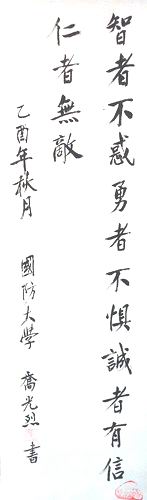 智者不惑勇者不懼誠者有信
仁者無敵
乙酉年秋月 國防大學 喬光烈 書